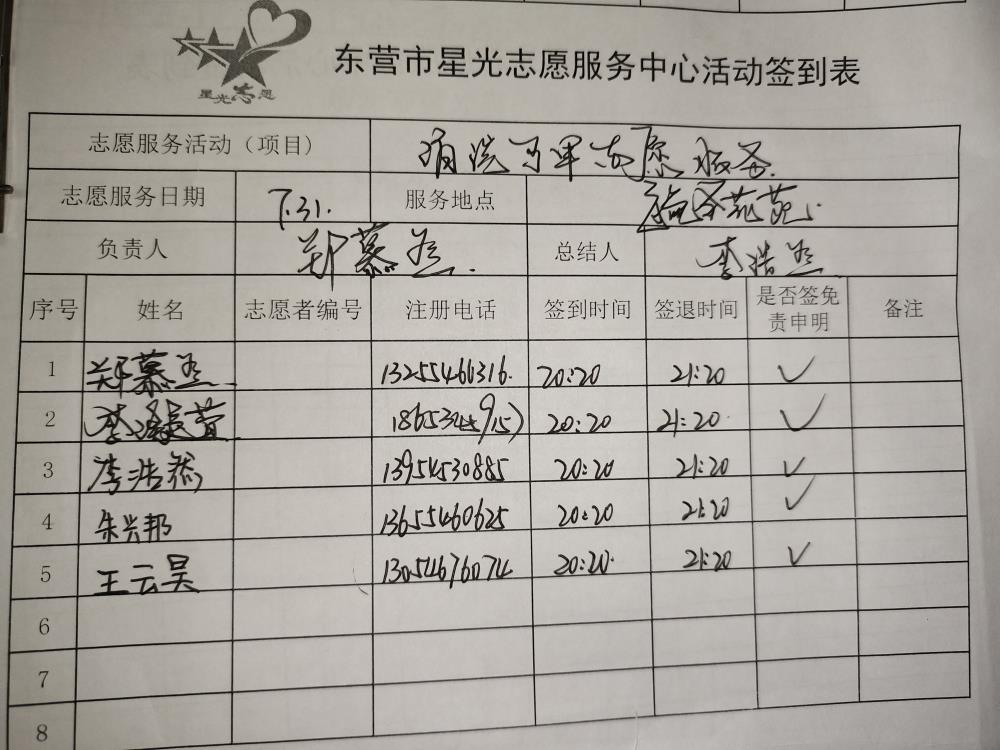 星光志愿
东营市星光志愿服务中心活动签到表
志愿服务活动（项目） 清洗万里志愿服务
志愿服务日期 7.31. 服务地点
负责人 郑慕兰 总结人 李浩然
序号 姓名 志愿者编号 注册电话 签到时间 签退时间 是否签免责申明 备注
1 郑慕兰 13255466316 20:20 21:20 ✓
2 李 萱 20:20 21:20 ✓
3 李浩然 13954530885 20:20 21:20 ✓
4 朱兴邦 13655460625 20:20 21:20 ✓
5 王云昊 13054676074 20:20 21:20 ✓
6
7
8